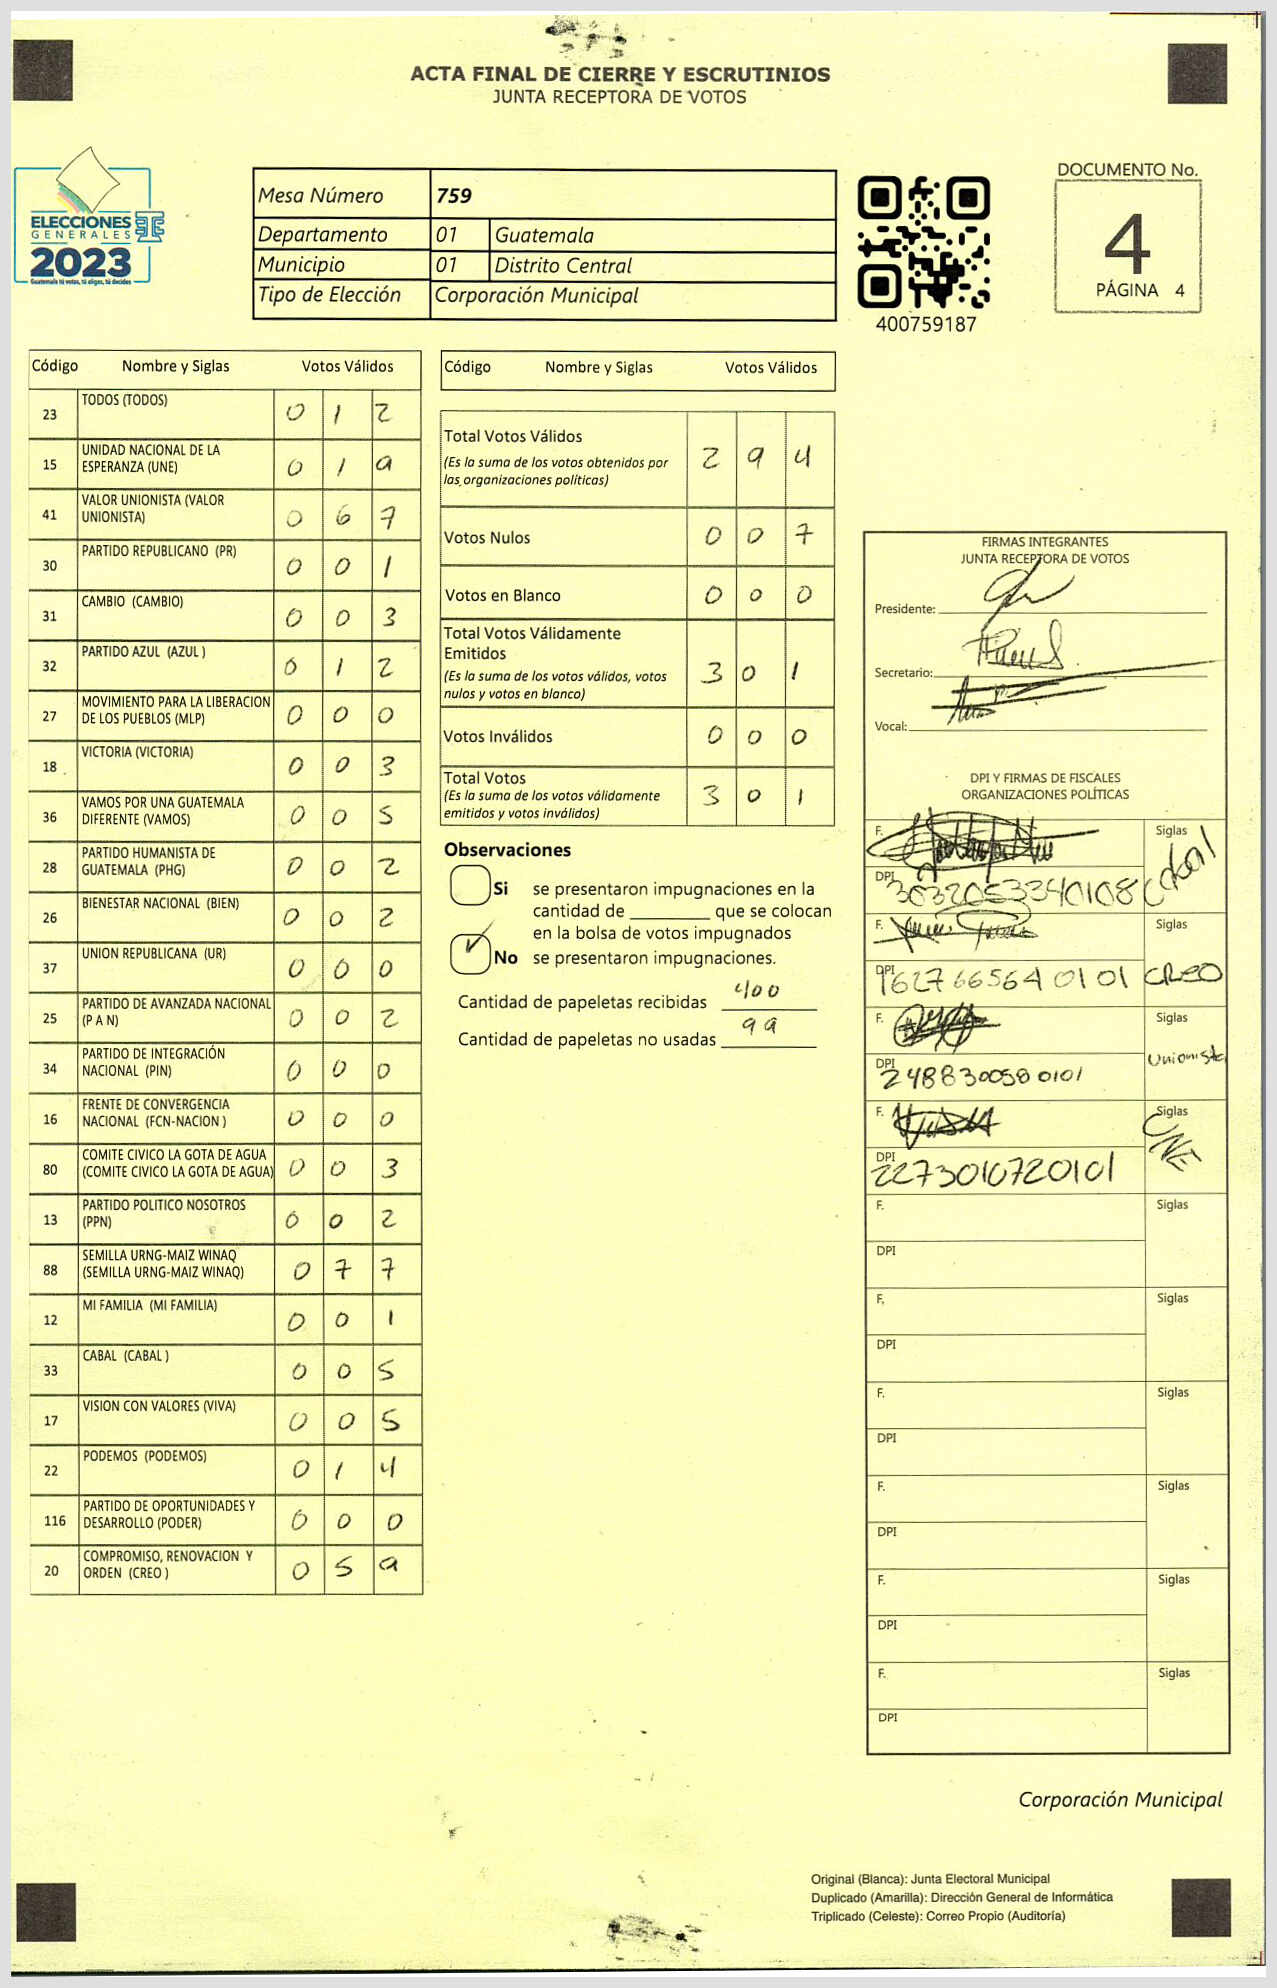 ACTA FINAL DE CIERRE Y ESCRUTINIOS
JUNTA RECEPTORA DE VOTOS
ELECCIONES
GENERALES
2023
Guatemala tú votas, tú eliges, tú decides
Mesa Número 759
Departamento 01 Guatemala
Municipio 01 Distrito Central
Tipo de Elección Corporación Municipal
400759187
DOCUMENTO No.
4
PÁGINA 4
Código Nombre y Siglas Votos Válidos
23 TODOS (TODOS) 0 1 2
15 UNIDAD NACIONAL DE LA
ESPERANZA (UNE) 0 1 9
41 VALOR UNIONISTA (VALOR
UNIONISTA) 0 6 7
30 PARTIDO REPUBLICANO (PR) 0 0 1
31 CAMBIO (CAMBIO) 0 0 3
32 PARTIDO AZUL (AZUL ) 0 1 2
27 MOVIMIENTO PARA LA LIBERACION
DE LOS PUEBLOS (MLP) 0 0 0
18 VICTORIA (VICTORIA) 0 0 3
36 VAMOS POR UNA GUATEMALA
DIFERENTE (VAMOS) 0 0 5
28 PARTIDO HUMANISTA DE
GUATEMALA (PHG) 0 0 2
26 BIENESTAR NACIONAL (BIEN) 0 0 2
37 UNION REPUBLICANA (UR) 0 0 0
25 PARTIDO DE AVANZADA NACIONAL
(P A N) 0 0 2
34 PARTIDO DE INTEGRACIÓN
NACIONAL (PIN) 0 0 0
16 FRENTE DE CONVERGENCIA
NACIONAL (FCN-NACION ) 0 0 0
80 COMITE CIVICO LA GOTA DE AGUA
(COMITE CIVICO LA GOTA DE AGUA) 0 0 3
13 PARTIDO POLITICO NOSOTROS
(PPN) 0 0 2
88 SEMILLA URNG-MAIZ WINAQ
(SEMILLA URNG-MAIZ WINAQ) 0 7 7
12 MI FAMILIA (MI FAMILIA) 0 0 1
33 CABAL (CABAL ) 0 0 5
17 VISION CON VALORES (VIVA) 0 0 5
22 PODEMOS (PODEMOS) 0 1 4
116 PARTIDO DE OPORTUNIDADES Y
DESARROLLO (PODER) 0 0 0
20 COMPROMISO, RENOVACION Y
ORDEN (CREO ) 0 5 9
Código Nombre y Siglas Votos Válidos
Total Votos Válidos 2 9 4
(Es la suma de los votos obtenidos por
las organizaciones políticas)
Votos Nulos 0 0 7
Votos en Blanco 0 0 0
Total Votos Válidamente
Emitidos
(Es la suma de los votos válidos, votos 3 0 1
nulos y votos en blanco)
Votos Inválidos 0 0 0
Total Votos
(Es la suma de los votos válidamente 3 0 1
emitidos y votos inválidos)
Observaciones
Si se presentaron impugnaciones en la
cantidad de ________ que se colocan
en la bolsa de votos impugnados
No se presentaron impugnaciones.
Cantidad de papeletas recibidas 400
Cantidad de papeletas no usadas 99
FIRMAS INTEGRANTES
JUNTA RECEPTORA DE VOTOS
Presidente:
Secretario:
Vocal:
DPI Y FIRMAS DE FISCALES
ORGANIZACIONES POLÍTICAS
F. Siglas
DPI 3032053340108
F. Siglas
DPI 1627665640101 CREO
F. Siglas
DPI 2488300580101 Unionista
F. Siglas
DPI 2273010720101 UNE
F. Siglas
DPI
F. Siglas
DPI
F. Siglas
DPI
F. Siglas
DPI
F. Siglas
DPI
F. Siglas
DPI
Corporación Municipal
Original (Blanca): Junta Electoral Municipal
Duplicado (Amarilla): Dirección General de Informática
Triplicado (Celeste): Correo Propio (Auditoría)